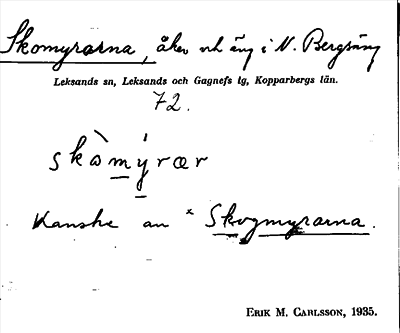 Skomyrarna, åker och äng i N. Bergsäng
Leksands sn, Leksands och Gagnefs tg, Kopparbergs län.
72.
skòmýrær
Kanske an * Skogmyrarna.
ERIK M. CARLSSON, 1935.